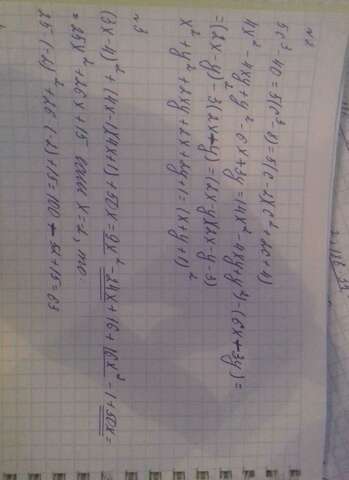 №2
5c³ - 40 = 5(c³ - 8) = 5(c - 2)(c² + 2c + 4)
4x² - 4xy + y² - 6x + 3y = (4x² - 4xy + y²) - (6x - 3y) =
= (2x - y)² - 3(2x - y) = (2x - y)(2x - y - 3)
x² + y² + 2xy + 2x + 2y + 1 = (x + y + 1)²
№3
(3x - 4)² + (4x - 1)(4x + 1) + 50x = 9x² - 24x + 16 + 16x² - 1 + 50x =
= 25x² + 26x + 15 если x = -2, то
25 · (-2)² + 26 · (-2) + 15 = 100 - 52 + 15 = 63